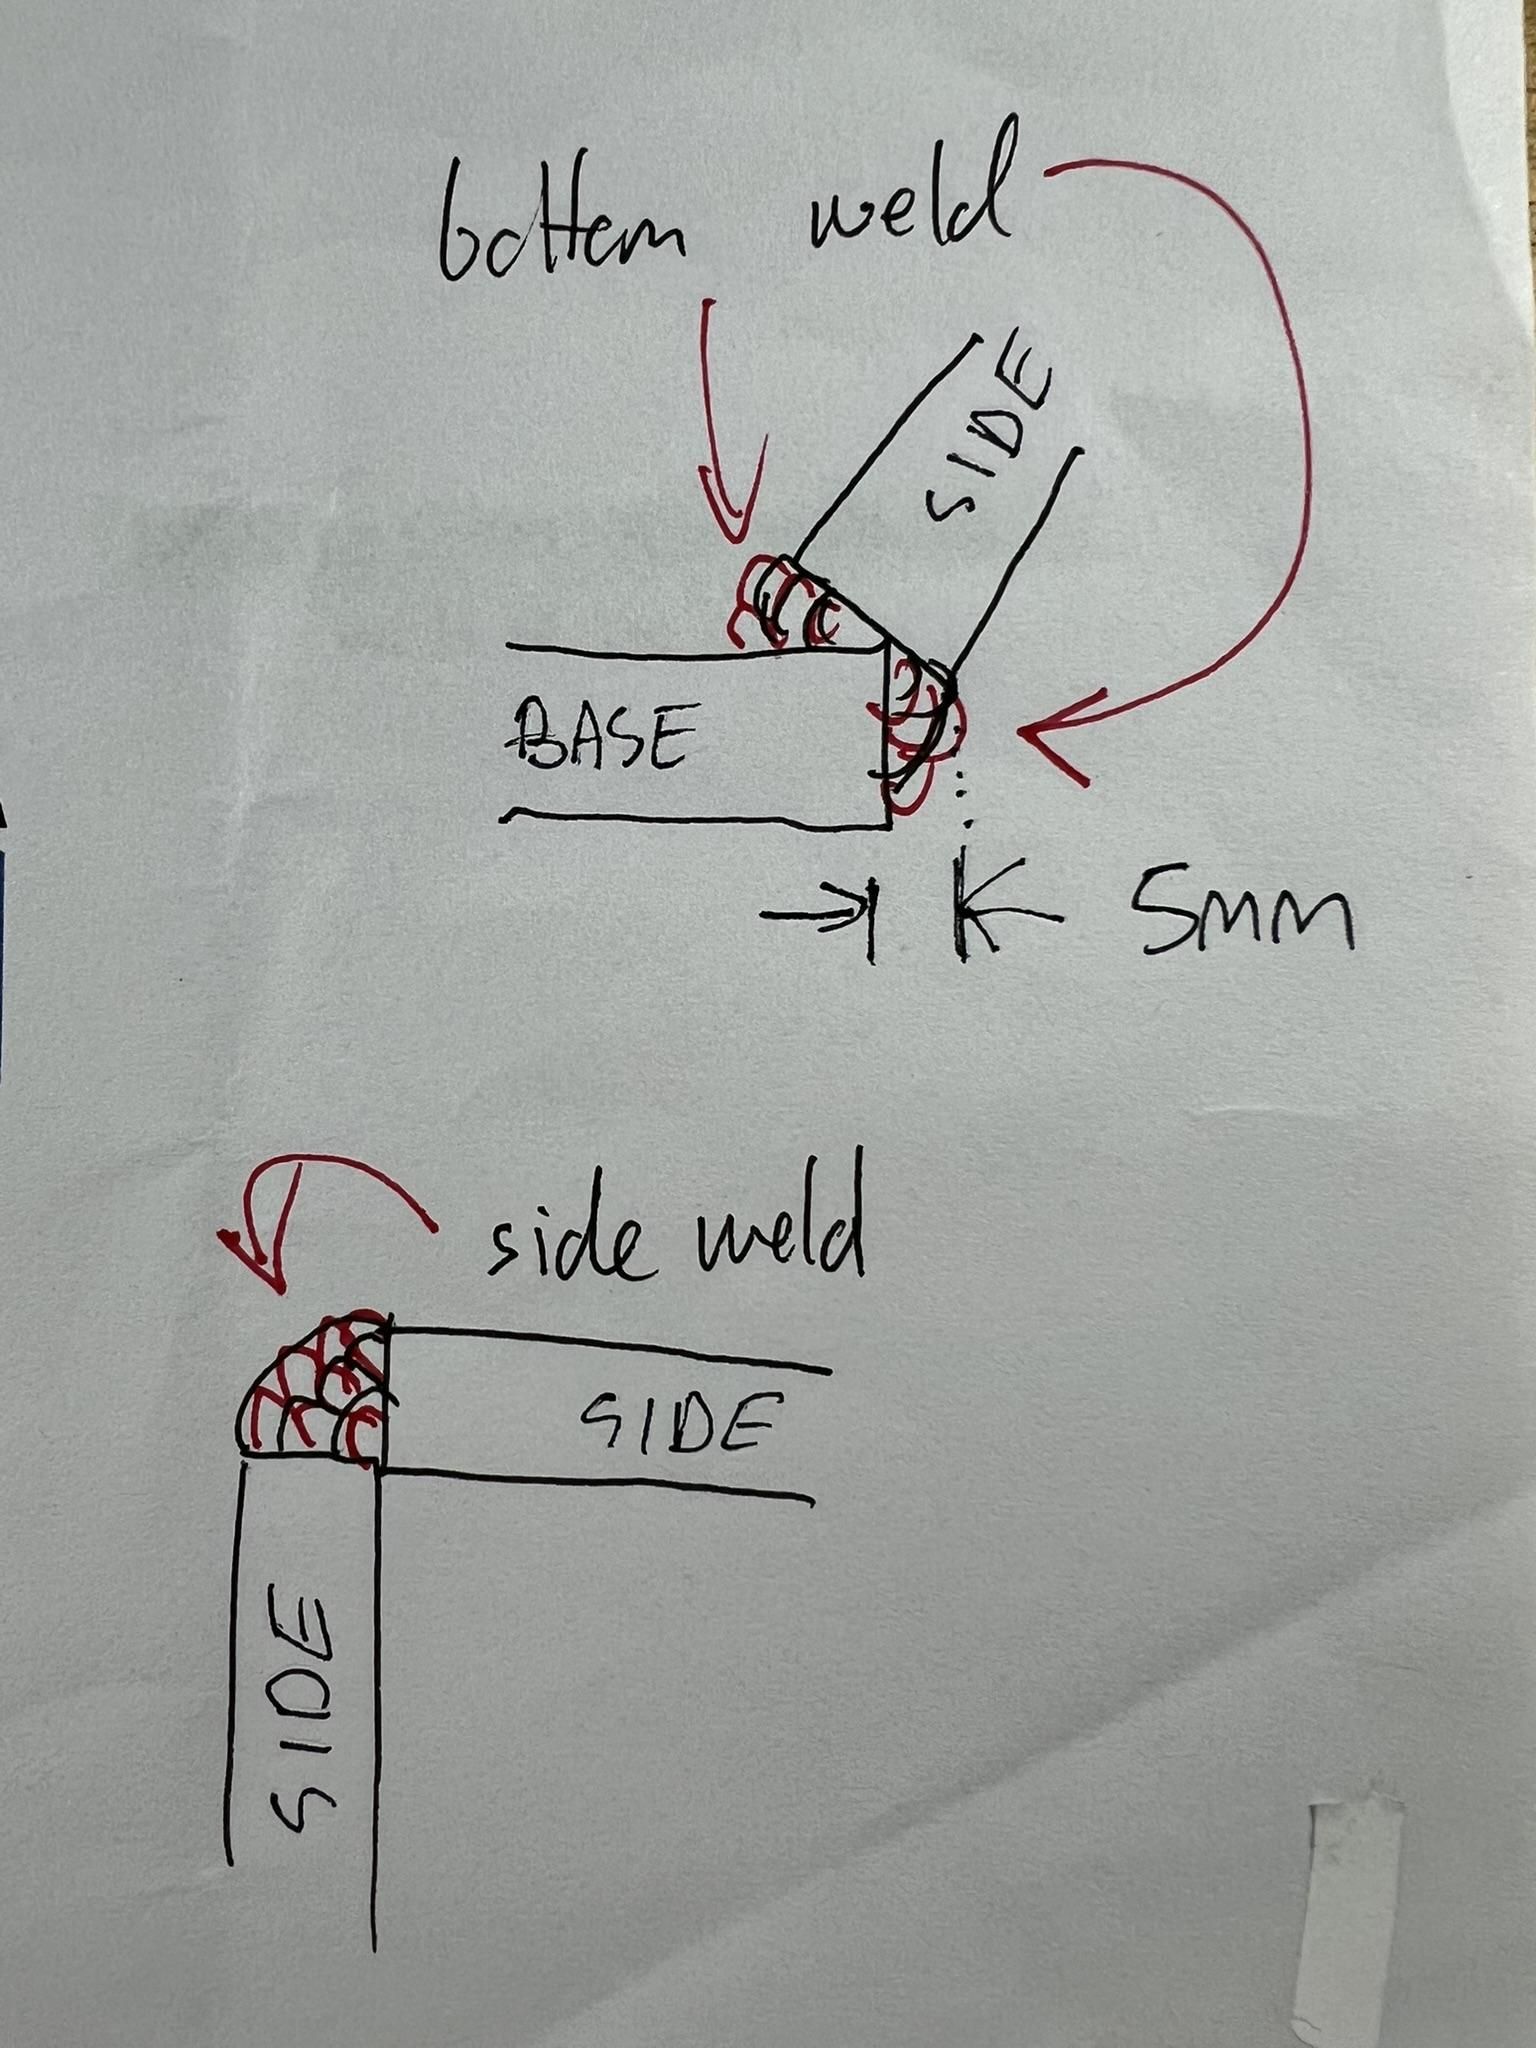 bottom weld
SIDE
BASE
5mm
side weld
SIDE
SIDE